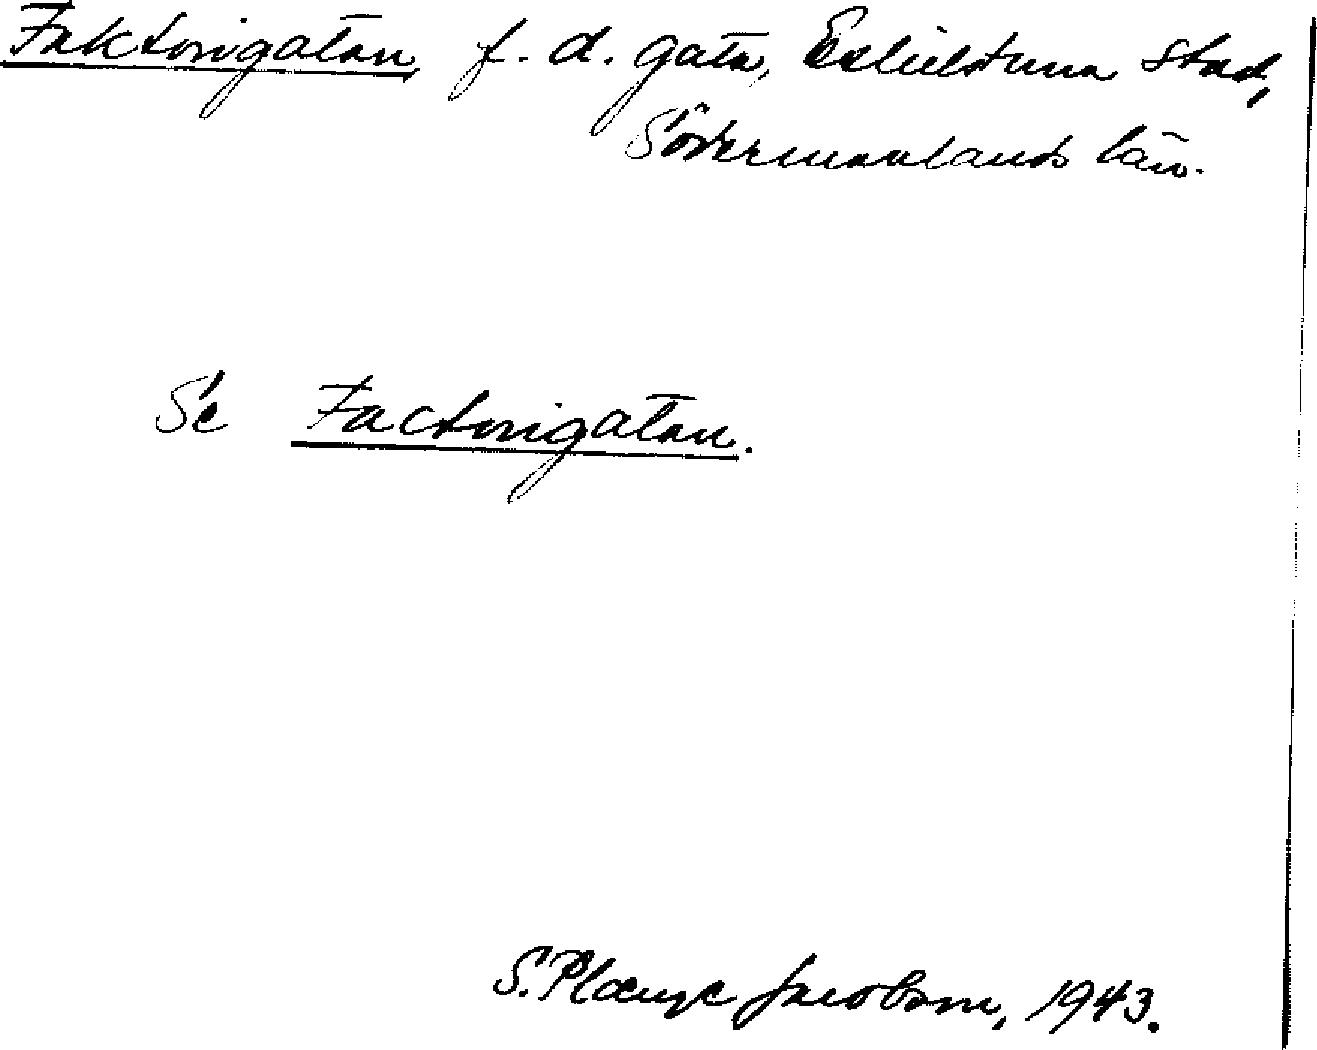 Faktorigatan, f. d. gata, Eskilstuna stad,
Södermanlands län.
Se Factorigatan.
S. Jacobson, 1943.